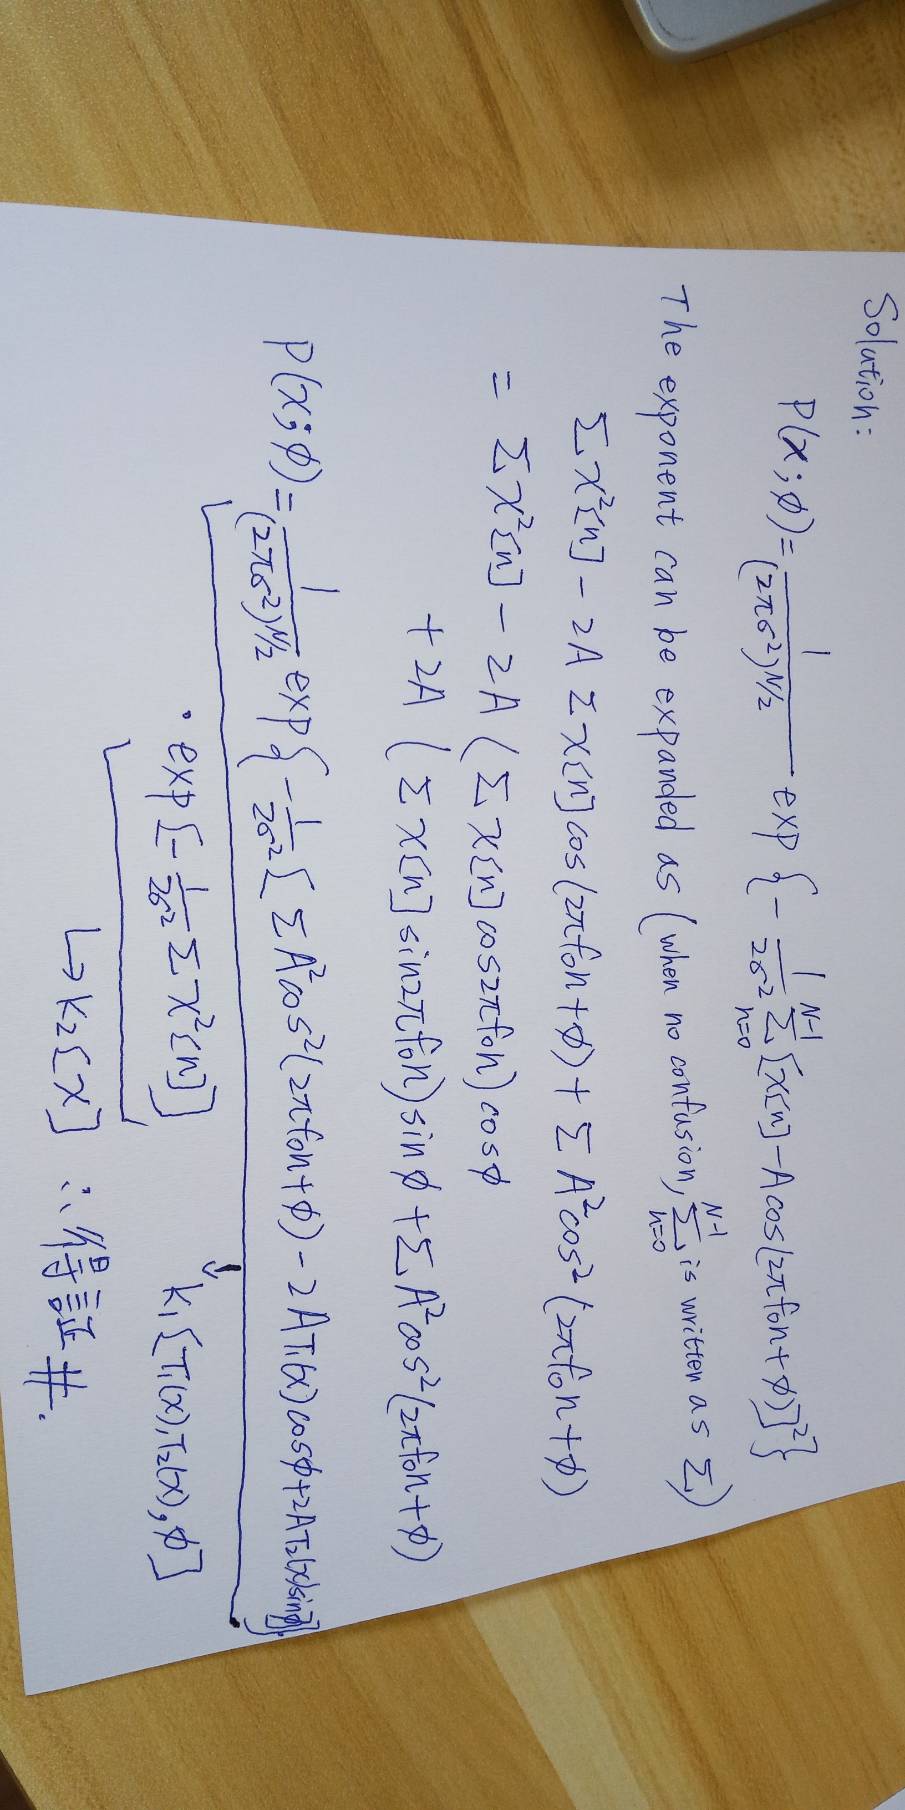 Solution:
P(x;ϕ)=1/(2πσ²)^{N/2} exp{-1/2σ² Σ_{n=0}^{N-1}[x[n]-Acos(2πf₀n+ϕ)]²}
The exponent can be expanded as (when no confusion, Σ_{n=0}^{N-1} is written as Σ)
Σx²[n]-2A Σx[n]cos(2πf₀n+ϕ)+ΣA²cos²(2πf₀n+ϕ)
= Σx²[n]-2A(Σx[n]cos2πf₀n)cosϕ
+2A(Σx[n]sin2πf₀n)sinϕ+ΣA²cos²(2πf₀n+ϕ)
P(x;ϕ)=1/(2πσ²)^{N/2} exp{-1/2σ²[ΣA²cos²(2πf₀n+ϕ)-2AT₁(x)cosϕ+2AT₂(x)sinϕ]}
· exp[-1/2σ² Σx²[n]] K₁[T₁(x),T₂(x),ϕ]
↳K₂[x] ∴得証#.